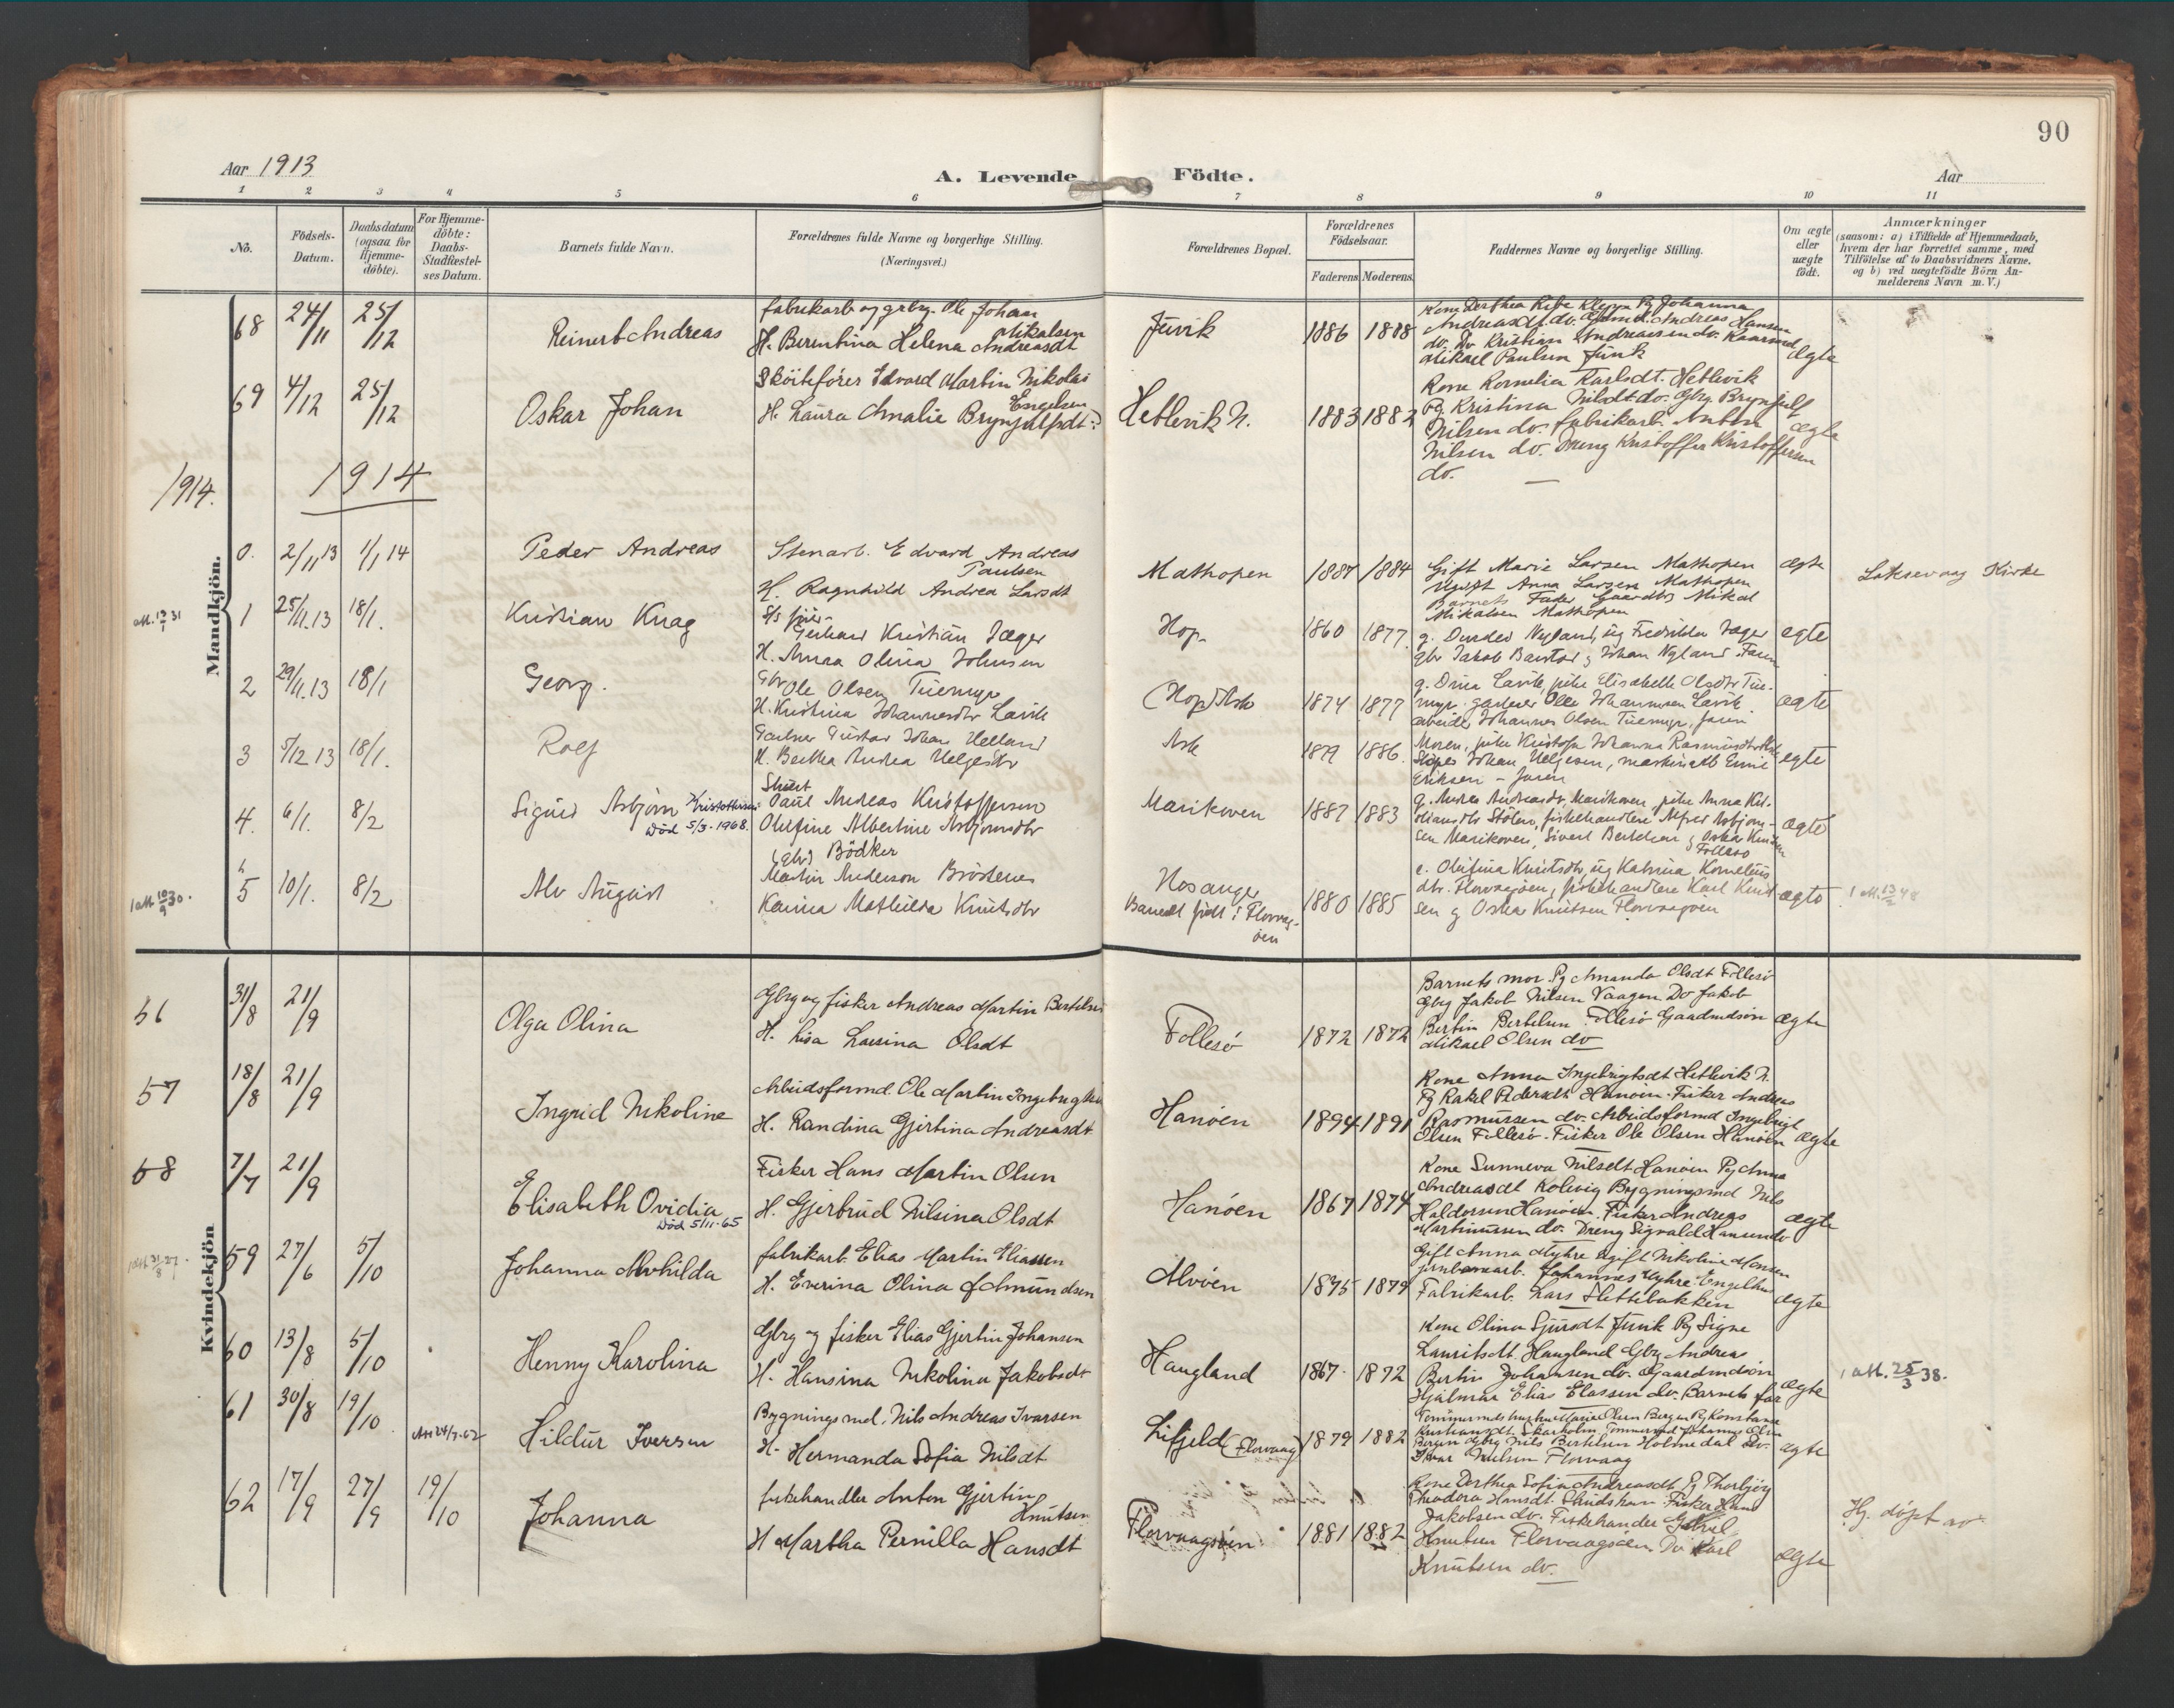 90
Aar 1913
A. Levende
Födte.
Aar
1 2 3 4 5 6 7 8 9 10 11
No.
Födsels-Datum.
Daabsdatum (ogsaa for Hjemme-döbte).
For Hjemme-döbte: Daabs-Stadfæstel-ses Datum.
Barnets fulde Navn.
Forældrenes fulde Navne og borgerlige Stilling.
(Næringsvei.)
Forældrenes Bopæl.
Forældrenes Födselsaar.
Faderens Moderens
Faddernes Navne og borgerlige Stilling.
Om ægte eller uægte födt.
Anmærkninger
(saasom: a) i Tilfælde af Hjemmedaab,
hvem der har forrettet samme, med
Tilföielse af to Daabsvidners Navne,
og b) ved uægtefödte Börn An-
melderens Navn m.V.)
Mandkjön.
68 24/11 25/12 Reinert Andreas
fabrikarb og grbg. Ole Johan
Mikalsen
H. Berentina Helena Andreasdt
Juvik 1886 1888
Andreas Hansen
do. Do Kristian Andreassen do.
Mikael Paulsen Juvik
ægte
69 4/12 25/12 Oskar Johan
Sköitefører Edvard Martin Nikolai
Engelsen
H. Laura Amalie Brynjulfsdt
Hetlevik N. 1883 1882
Kone Kornelia Karlsdt. Hetlevik
Pg. Kristina Nilsdt do. Gbrg Brynjulf
Nilsen do. fabrikarb. Anton
Nilsen do. Dreng Kristoffer Kristoffersen
do.
ægte
1914.
1914
0. 2/11 13 1/1 14 Peder Andreas
Stenarb. Edvard Andreas
Paulsen
H. Ragnhild Andrea Larsdt
Mathopen 1887 1884
Gift Marie Larsen Mathopen
Ugift Anna Larsen Mathopen
Barnets Fader Gaardbr Mikal
Mikalsen Mathopen
ægte
Laksevaag Kirke
1 25/11.13 18/1. Kristian Knag
Gerhard Kristian Jæger
H. Anna Olina Johnsen
Hop. 1860 1877.
Nyland, ug Fredrikke Jæger
gbr Jakob Johan Nyland. Faren
ægte
2 29/11.13 18/1 Georg.
Gbr Ole Olsen Tuemyr
H. Kristina Johannesdtr Lavik
(Hop) Ask 1874 1877
g. Lavik, pike Elisabeth Olsdtr Tue-
myr. gartner Olai Johannesen Lavik
arbeider Johannes Olsen Tuemyr, faren
ægte
3 5/12 13 18/1. Rolf
Gartner Gustav Johan Helland
H. Bertha Andrea Helgesdtr
Ask 1879 1886.
Moren, pike Johanna Rasmusdtr Ask
Johan Helgesen,
Eriksen - faren
ægte
4. 6/1. 8/2 Sigurd Asbjørn Kristoffersen
Död 5/3-1968.
Paul Andreas Kristoffersen
Olufine Albertine Asbjørnsdtr
Marikoven 1887 1883
g. Andrea Andreasdr, Marikoven, pike Anna Kri-
stiansdtr Stölen, fiskehandlere Alfred Asbjørn-
sen Marikoven, Sivert Bertelsen og Oskar Knutsen
Follesö
ægte
5 10/1. 8/2 Alv August
(gbr) Bödker
Martin Anderson
Karina Mathilda Knutsdtr
Hosanger
Barnet født i Florvag-
öen
1880 1885
e. Olufina Knutsdtr, ug Katrina Kornelius
dtr. Florvaagöen, fiskehandlere Karl Knut-
sen og Oskar Knutsen Florvaagöen
ægte
Kvindekjön
56 31/8 21/9 Olga Olina
Gbrg og fisker Andreas Martin Bertelsen
H. Lisa Lovisina Olsdt
Follesö 1872 1872
Barnets mor. Pg Amanda Olsdt Follesö
Gbrg Jakob Nilsen Vaagen. Do Jakob
Bertin Bertelsen Follesö Gaardmdsön
Mikael Olsen do
ægte
57 18/8 21/9 Ingrid Nikoline
Arbeidsformd. Ole Martin Ingebrigtsen
H. Randina Gjertina Andreasdt
Hanöen 1894 1891
Kone Anna Ingebrigtsdt Hetlevik N.
Pg Rakel Pedersdt Hanöen. Fisker Andreas
Rasmussen do. Arbeidsformd Ingebrigt
Olsen Follesö. Fisker Ole Olsen Hanöen
ægte
58 7/7 21/9 Elisabeth Ovidia
Död 5/11-65
Fisker Hans Martin Olsen
H. Gjertrud Nilsina Olsdt
Hanöen 1867 1874
Kone Sunneva Nilsdt Hanöen Pg Anna
Andreasdt Kolevig Bygningsmd Nils
Haldorsen Hanöen. Fisker Andreas
Martinussen do. Dreng Sigvald Hansen do
ægte
59 27/6 5/10 Johanna Alvhilda
fabrikarb. Elias Martin Eliassen
H. Everina Olina Amundsen
Alvöen 1875 1879
Gift Anna Myhre Ugift Nikoline Monsen
Johannes Myhre
Fabrikarb. Lars Slettebakken
ægte
60 13/8 5/10 Henny Karolina
Gbrg og fisker Elias Gjertin Johansen
H. Hansina Nikolina Jakobsdt
Haugland 1867. 1872
Kone Olina Sjursdt Juvik Pg Signe
Lauritsdt. Haugland Gbrg Andreas
Bertin Johansen do. Gaardmdsön
Hjalmar Elias Eliassen do. Barnets far
ægte
1 att. 25/3 38.
61 30/8 19/10. Hildur Iversen
Bygningsmd. Nils Andreas Ivarsen
H. Hermanda Sofia Nilsdt
Lifjeld (Florvaag) 1879 1882
Bergen Gbrg Nils Bertelsen Holmedal
Ivar Nielsen Florvaag
ægte
62 17/9 27/9 19/10 Johanna
fiskehandler Anton Gjertin
Knutsen
H Martha Pernilla Hansdt
Florvaagsöen 1881 1882
Kone Dorthea Sofia Andreasdt Pg Thorbjörg
Theodora Hansdt. Fisker Hans
Jakobsen do. Fiskehandler
Knutsen Florvaagsöen. Do Karl
Knutsen do.
ægte
Hj. döpt av